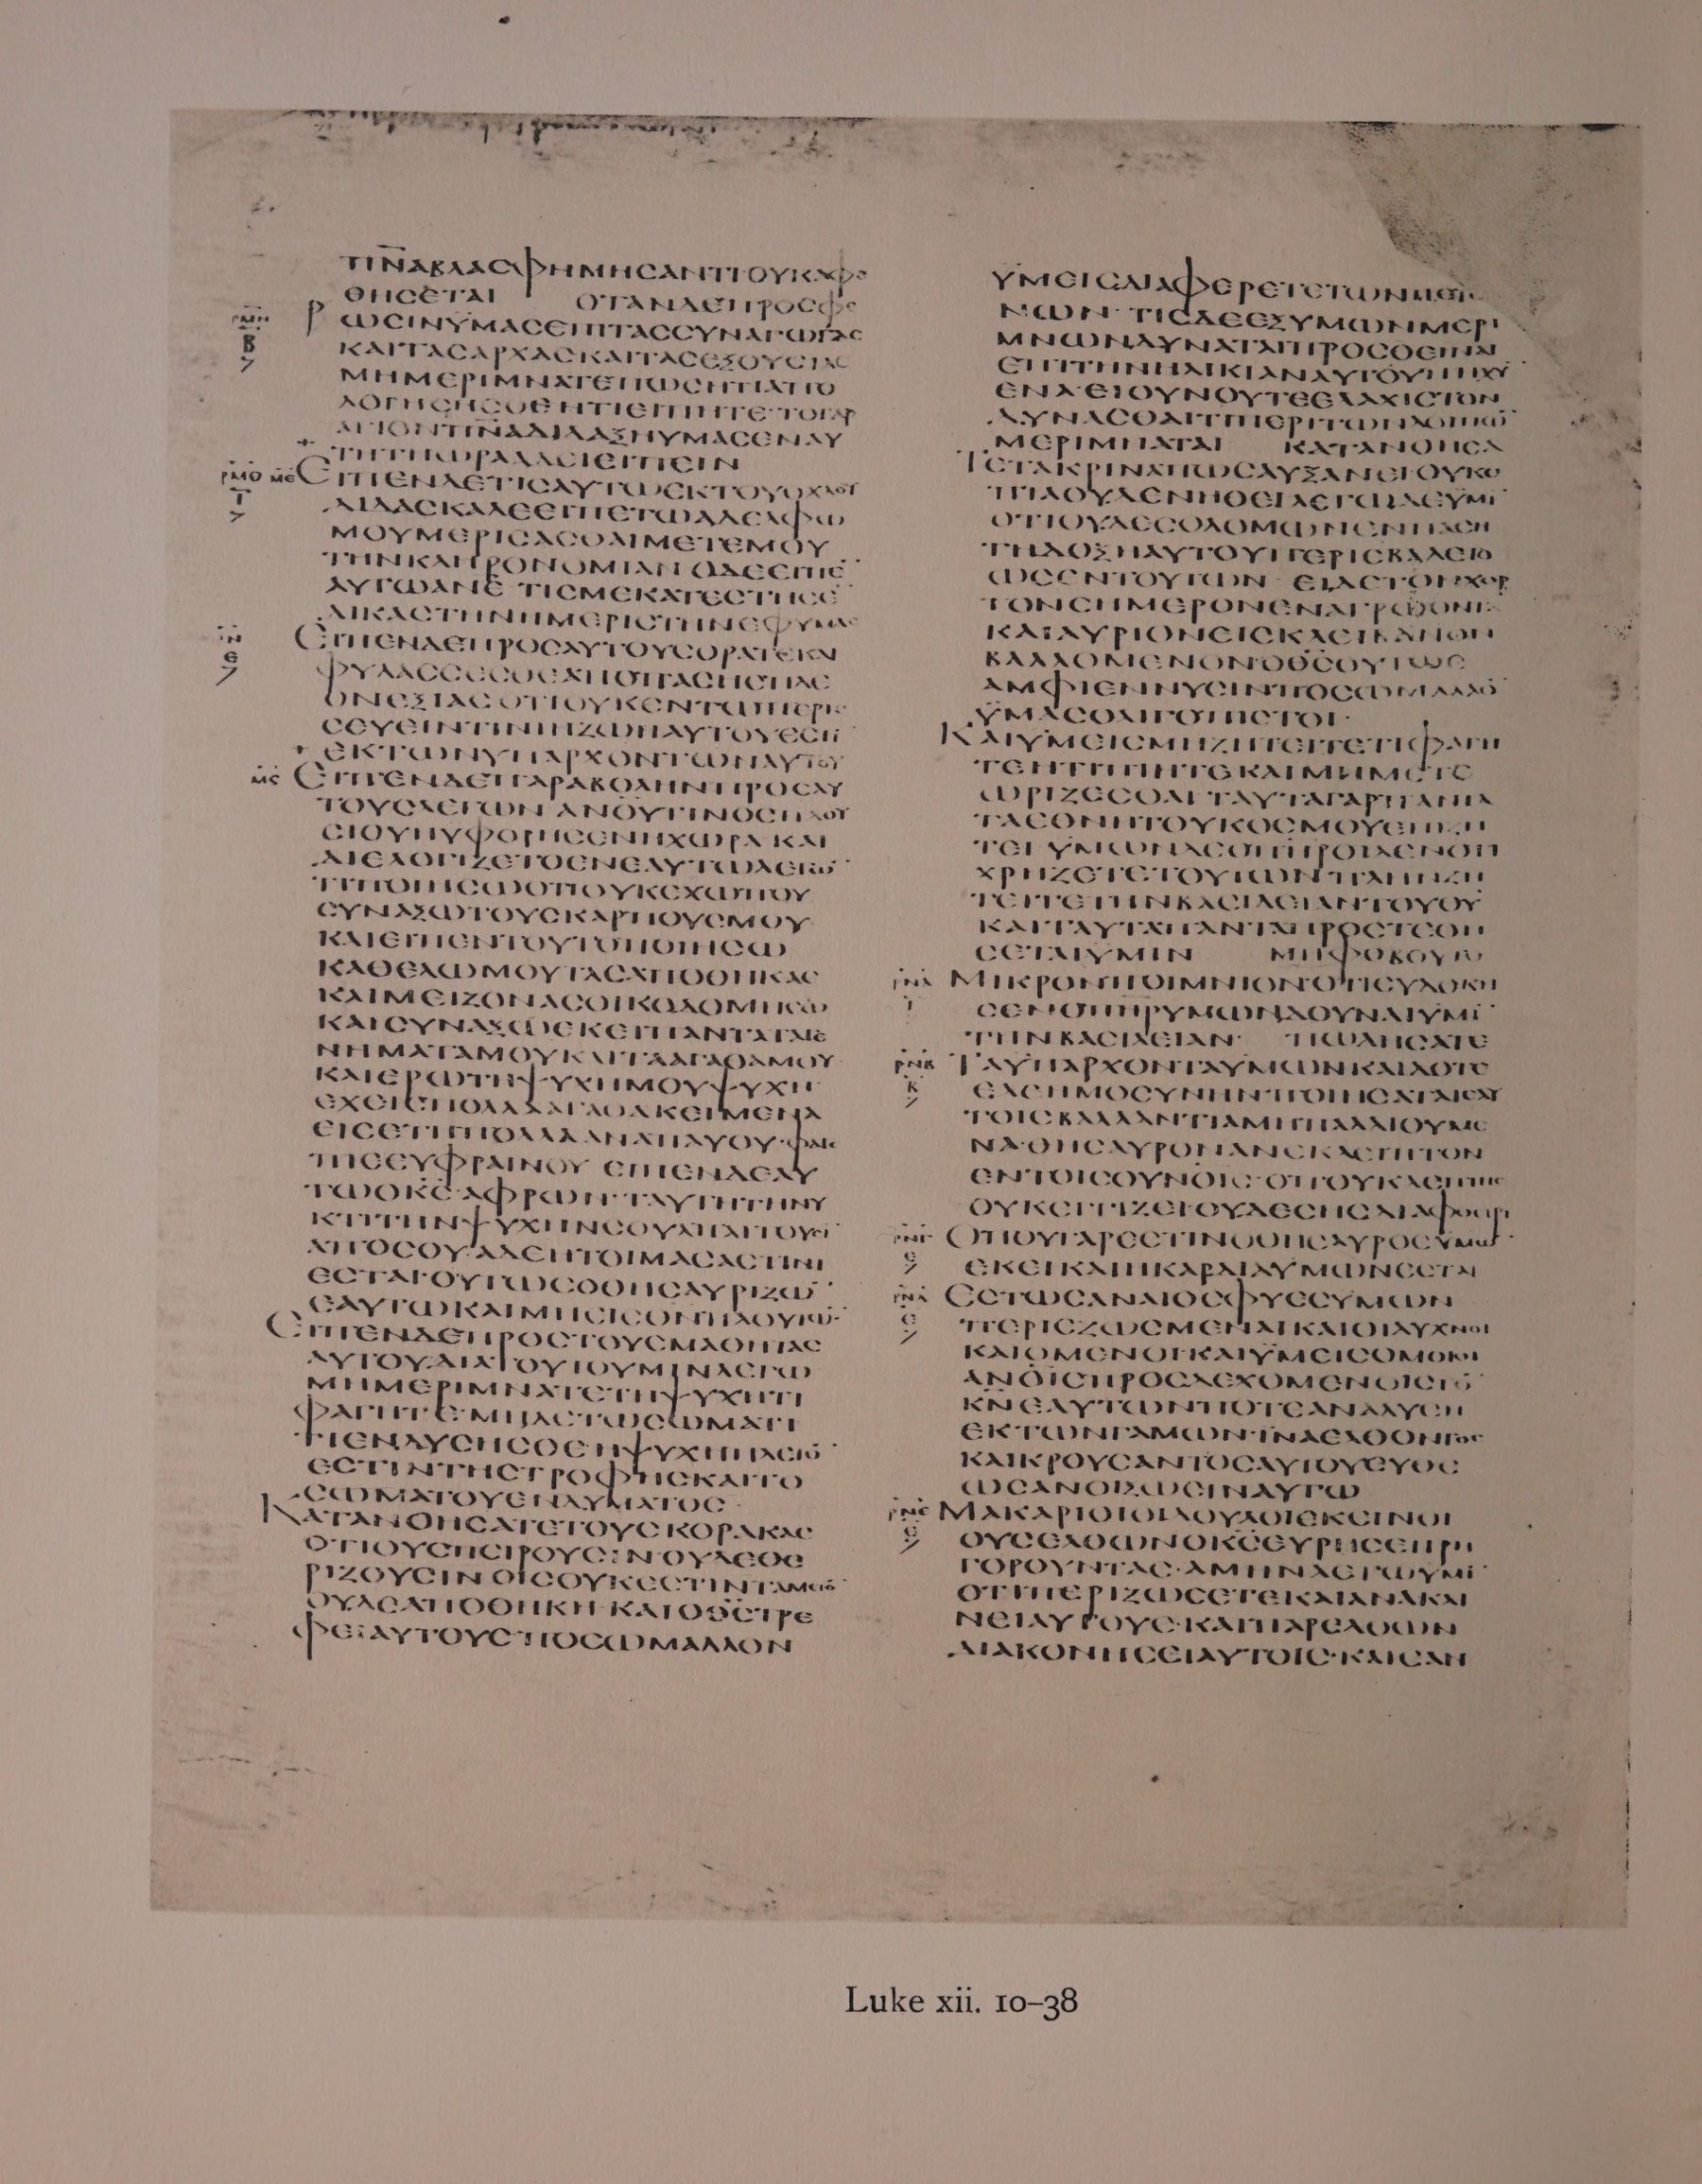 ΠΝΑΒΛΑϹΦΗΜΗϹΑΝΤΙΟΥΚΑΦΕ
ΘΗϹΕΤΑΙ ΟΤΑΝΔΕΠΡΟϹΦΕ
ΡΩϹΙΝΥΜΑϹΕΠΙΤΑϹϹΥΝΑΓΩΓΑϹ
ΚΑΙΤΑϹΑΡΧΑϹΚΑΙΤΑϹΕΞΟΥϹΙΑϹ
ΜΗΜΕΡΙΜΝΑΤΕΠΩϹΗΤΙΑΠΟ
ΛΟΓΗϹΗϹΘΕΗΤΙΕΙΠΗΤΕΤΟΓΑΡ
ΑΓΙΟΝΠΝΑΔΙΔΑΞΗΥΜΑϹΕΝΑΥ
ΤΗΤΗΩΡΑΑΔΕΙΕΙΠΕΙΝ
ΡΜΘ ΜΕ ΕΙΠΕΝΔΕΤΙϹΑΥΤΩΕΚΤΟΥΟΧΛΟΥ
ΔΙΔΑϹΚΑΛΕΕΙΠΕΤΩΑΔΕΛΦΩ
ΜΟΥΜΕΡΙϹΑϹΘΑΙΜΕΤΕΜΟΥ
ΤΗΝΚΛΗΡΟΝΟΜΙΑΝ ΟΔΕΕΙΠΕ
ΑΥΤΩΑΝΕ ΤΙϹΜΕΚΑΤΕϹΤΗϹΕ
ΔΙΚΑϹΤΗΝΗΜΕΡΙϹΤΗΝΕΦΥΜΑϹ
ΕΙΠΕΝΔΕΠΡΟϹΑΥΤΟΥϹΟΡΑΤΕΚΑΙ
ΦΥΛΑϹϹΕϹΘΕΑΠΟΠΑϹΗϹΠΛΕ
ΟΝΕΞΙΑϹ ΟΤΙΟΥΚΕΝΤΩΠΕΡΙϹ
ϹΕΥΕΙΝΤΙΝΙΗΖΩΗΑΥΤΟΥΕϹΤΙ
ΕΚΤΩΝΥΠΑΡΧΟΝΤΩΝΑΥΤΟΥ
ΜϚ ΕΙΠΕΝΔΕΠΑΡΑΒΟΛΗΝΠΡΟϹΑΥ
ΤΟΥϹΛΕΓΩΝ ΑΝΟΥΤΙΝΟϹΠΛΟΥ
ϹΙΟΥΗΥΦΟΡΗϹΕΝΗΧΩΡΑ ΚΑΙ
ΔΙΕΛΟΓΙΖΕΤΟΕΝΕΑΥΤΩΛΕΓΩ
ΤΙΠΟΙΗϹΩΟΤΙΟΥΚΕΧΩΠΟΥ
ϹΥΝΑΞΩΤΟΥϹΚΑΡΠΟΥϹΜΟΥ
ΚΑΙΕΙΠΕΝΤΟΥΤΟΠΟΙΗϹΩ
ΚΑΘΕΛΩΜΟΥΤΑϹΑΠΟΘΗΚΑϹ
ΚΑΙΜΕΙΖΟΝΑϹΟΙΚΟΔΟΜΗϹΩ
ΚΑΙϹΥΝΑΞΩΕΚΕΙΠΑΝΤΑΤΑΓΕ
ΝΗΜΑΤΑΜΟΥΚΑΙΤΑΑΓΑΘΑΜΟΥ
ΚΑΙΕΡΩΤΗΨΥΧΗΜΟΥΨΥΧΗ
ΕΧΕΙϹΠΟΛΛΑΑΓΑΘΑΚΕΙΜΕΝΑ
ΕΙϹΕΤΗΠΟΛΛΑΑΝΑΠΑΥΟΥ·ΦΑΓΕ
ΠΙΕΕΥΦΡΑΙΝΟΥ ΕΙΠΕΝΔΕΑΥ
ΤΩΟΘϹ ΑΦΡΩΝΤΑΥΤΗΤΗΝΥ
ΚΤΙΤΗΝΨΥΧΗΝϹΟΥΑΠΑΙΤΟΥϹΙ
ΑΠΟϹΟΥΑΔΕΗΤΟΙΜΑϹΑϹΤΙΝΙ
ΕϹΤΑΙΟΥΤΩϹΟΘΗϹΑΥΡΙΖΩ
ΕΑΥΤΩΚΑΙΜΗΕΙϹΘΝΠΛΟΥΤΩ
ΕΙΠΕΝΔΕΠΡΟϹΤΟΥϹΜΑΘΗΤΑϹ
ΑΥΤΟΥΔΙΑΤΟΥΤΟΥΜΙΝΛΕΓΩ
ΜΗΜΕΡΙΜΝΑΤΕΤΗΨΥΧΗΤΙ
ΦΑΓΗΤΕ·ΜΗΔΕΤΩϹΩΜΑΤΙ
ΤΙΕΝΔΥϹΗϹΘΕΗΨΥΧΗΠΛΕΙΟ
ΕϹΤΙΝΤΗϹΤΡΟΦΗϹΚΑΙΤΟ
ϹΩΜΑΤΟΥΕΝΔΥΜΑΤΟϹ
ΚΑΤΑΝΟΗϹΑΤΕΤΟΥϹΚΟΡΑΚΑϹ
ΟΤΙΟΥϹΠΕΙΡΟΥϹΙΝΟΥΔΕΘΕ
ΡΙΖΟΥϹΙΝΟΙϹΟΥΚΕϹΤΙΝΤΑΜΕΙΟ
ΟΥΔΕΑΠΟΘΗΚΗ·ΚΑΙΟΘϹΤΡΕ
ΦΕΙΑΥΤΟΥϹΠΟϹΩΜΑΛΛΟΝ
ΥΜΕΙϹΔΙΑΦΕΡΕΤΕΤΩΝΠΕΤΙ
ΝΩΝ·ΤΙϹΔΕΕΞΥΜΩΝΜΕΡΙ
ΜΝΩΝΔΥΝΑΤΑΙΠΡΟϹΘΕΙΝΑΙ
ΕΠΙΤΗΝΗΛΙΚΙΑΝΑΥΤΟΥΠΗΧΥ
ΕΝΑ·ΕΙΟΥΝΟΥΤΕΕΛΑΧΙϹΤΟΝ
ΔΥΝΑϹΘΑΙΤΙΠΕΡΙΤΩΝΛΟΙΠΩ
ΜΕΡΙΜΝΑΤΑΙ ΚΑΤΑΝΟΗϹΑ
ΤΕΤΑΚΡΙΝΑΠΩϹΑΥΞΑΝΕΙΟΥΚΟ
ΠΙΑΟΥΔΕΝΗΘΕΙΛΕΓΩΔΕΥΜΙ
ΟΤΙΟΥΔΕϹΟΛΟΜΩΝΕΝΠΑϹΗ
ΤΗΔΟΞΗΑΥΤΟΥΠΕΡΙΕΒΑΛΕΤΟ
ΩϹΕΝΤΟΥΤΩΝ·ΕΙΔΕΤΟΝΧΟΡ
ΤΟΝϹΗΜΕΡΟΝΕΝΑΓΡΩΟΝΤΑ
ΚΑΙΑΥΡΙΟΝΕΙϹΚΛΙΒΑΝΟΝ
ΒΑΛΛΟΜΕΝΟΝΟΘϹΟΥΤΩϹ
ΑΜΦΙΕΝΝΥϹΙΝΠΟϹΩΜΑΛΛΟ
ΥΜΑϹΟΛΙΓΟΠΙϹΤΟΙ·
ΚΑΙΥΜΕΙϹΜΗΖΗΤΕΙΤΕΤΙΦΑΓΗ
ΤΕΗΤΙΠΙΗΤΕΚΑΙΜΗΜΕΤΕ
ΩΡΙΖΕϹΘΑΙ·ΤΑΥΤΑΓΑΡΠΑΝΤΑ
ΤΑΕΘΝΗΤΟΥΚΟϹΜΟΥΕΠΙΖΗ
ΤΕΙ·ΥΜΩΝΔΕΟΠΗΡΟΙΔΕΝΟΤΙ
ΧΡΗΖΕΤΕΤΟΥΤΩΝΠΛΗΝΖΗ
ΤΕΙΤΕΤΗΝΒΑϹΙΛΕΙΑΝΤΟΥΘΥ
ΚΑΙΤΑΥΤΑΠΑΝΤΑΠΡΟϹΤΕΘΗ
ϹΕΤΑΙΥΜΙΝ ΜΗΦΟΒΟΥΤΟ
ΡΝΑ ΜΙΚΡΟΝΠΟΙΜΝΙΟΝΟΤΙΕΥΔΟΚΗ
ϹΕΝΟΠΗΡΥΜΩΝΔΟΥΝΑΙΥΜΙ
ΤΗΝΒΑϹΙΛΕΙΑΝ ΠΩΛΗϹΑΤΕ
ΡΝΒ ΤΑΥΠΑΡΧΟΝΤΑΥΜΩΝΚΑΙΔΟΤΕ
ΕΛΕΗΜΟϹΥΝΗΝΠΟΙΗϹΑΤΑΙΕΑΥ
ΤΟΙϹΒΑΛΛΑΝΤΙΑΜΗΠΑΛΑΙΟΥΜΕ
ΝΑ·ΘΗϹΑΥΡΟΝΑΝΕΚΛΕΙΠΤΟΝ
ΕΝΤΟΙϹΟΥΝΟΙϹ·ΟΠΟΥΚΛΕΠΤΗϹ
ΟΥΚΕΓΓΙΖΕΙΟΥΔΕϹΗϹΔΙΑΦΘΕΙΡΙ
ΡΝΓ ΟΠΟΥΓΑΡΕϹΤΙΝΟΘΗϹΑΥΡΟϹΥΜΩ
ΕΚΕΙΚΑΙΗΚΑΡΔΙΑΥΜΩΝΕϹΤΑΙ
ΡΝΔ ΕϹΤΩϹΑΝΑΙΟϹΦΥΕϹΥΜΩΝ
ΠΕΡΙΕΖΩϹΜΕΝΑΙΚΑΙΟΙΛΥΧΝΟΙ
ΚΑΙΟΜΕΝΟΙΚΑΙΥΜΕΙϹΟΜΟΙΟΙ
ΑΝΟΙϹΠΡΟϹΔΕΧΟΜΕΝΟΙϹΤΟ
ΚΝΕΑΥΤΩΝΠΟΤΕΑΝΑΛΥϹΗ
ΕΚΤΩΝΓΑΜΩΝ·ΙΝΑΕΛΘΟΝΤΟϹ
ΚΑΙΚΡΟΥϹΑΝΤΟϹΑΥΤΟΥΕΥΘΕ
ΩϹΑΝΟΙΞΩϹΙΝΑΥΤΩ
ΡΝΕ ΜΑΚΑΡΙΟΙΟΙΔΟΥΛΟΙΕΚΕΙΝΟΙ
ΟΥϹΕΛΘΩΝΟΚϹΕΥΡΗϹΕΙΓΡΗ
ΓΟΡΟΥΝΤΑϹ·ΑΜΗΝΛΕΓΩΥΜΙ
ΟΤΙΠΕΡΙΖΩϹΕΤΕΚΑΙΑΝΑΚΛΙ
ΝΕΙΑΥΤΟΥϹ·ΚΑΙΠΑΡΕΛΘΩΝ
ΔΙΑΚΟΝΗϹΕΙΑΥΤΟΙϹ·ΚΑΙΕΑΝ
Luke xii. 10–38